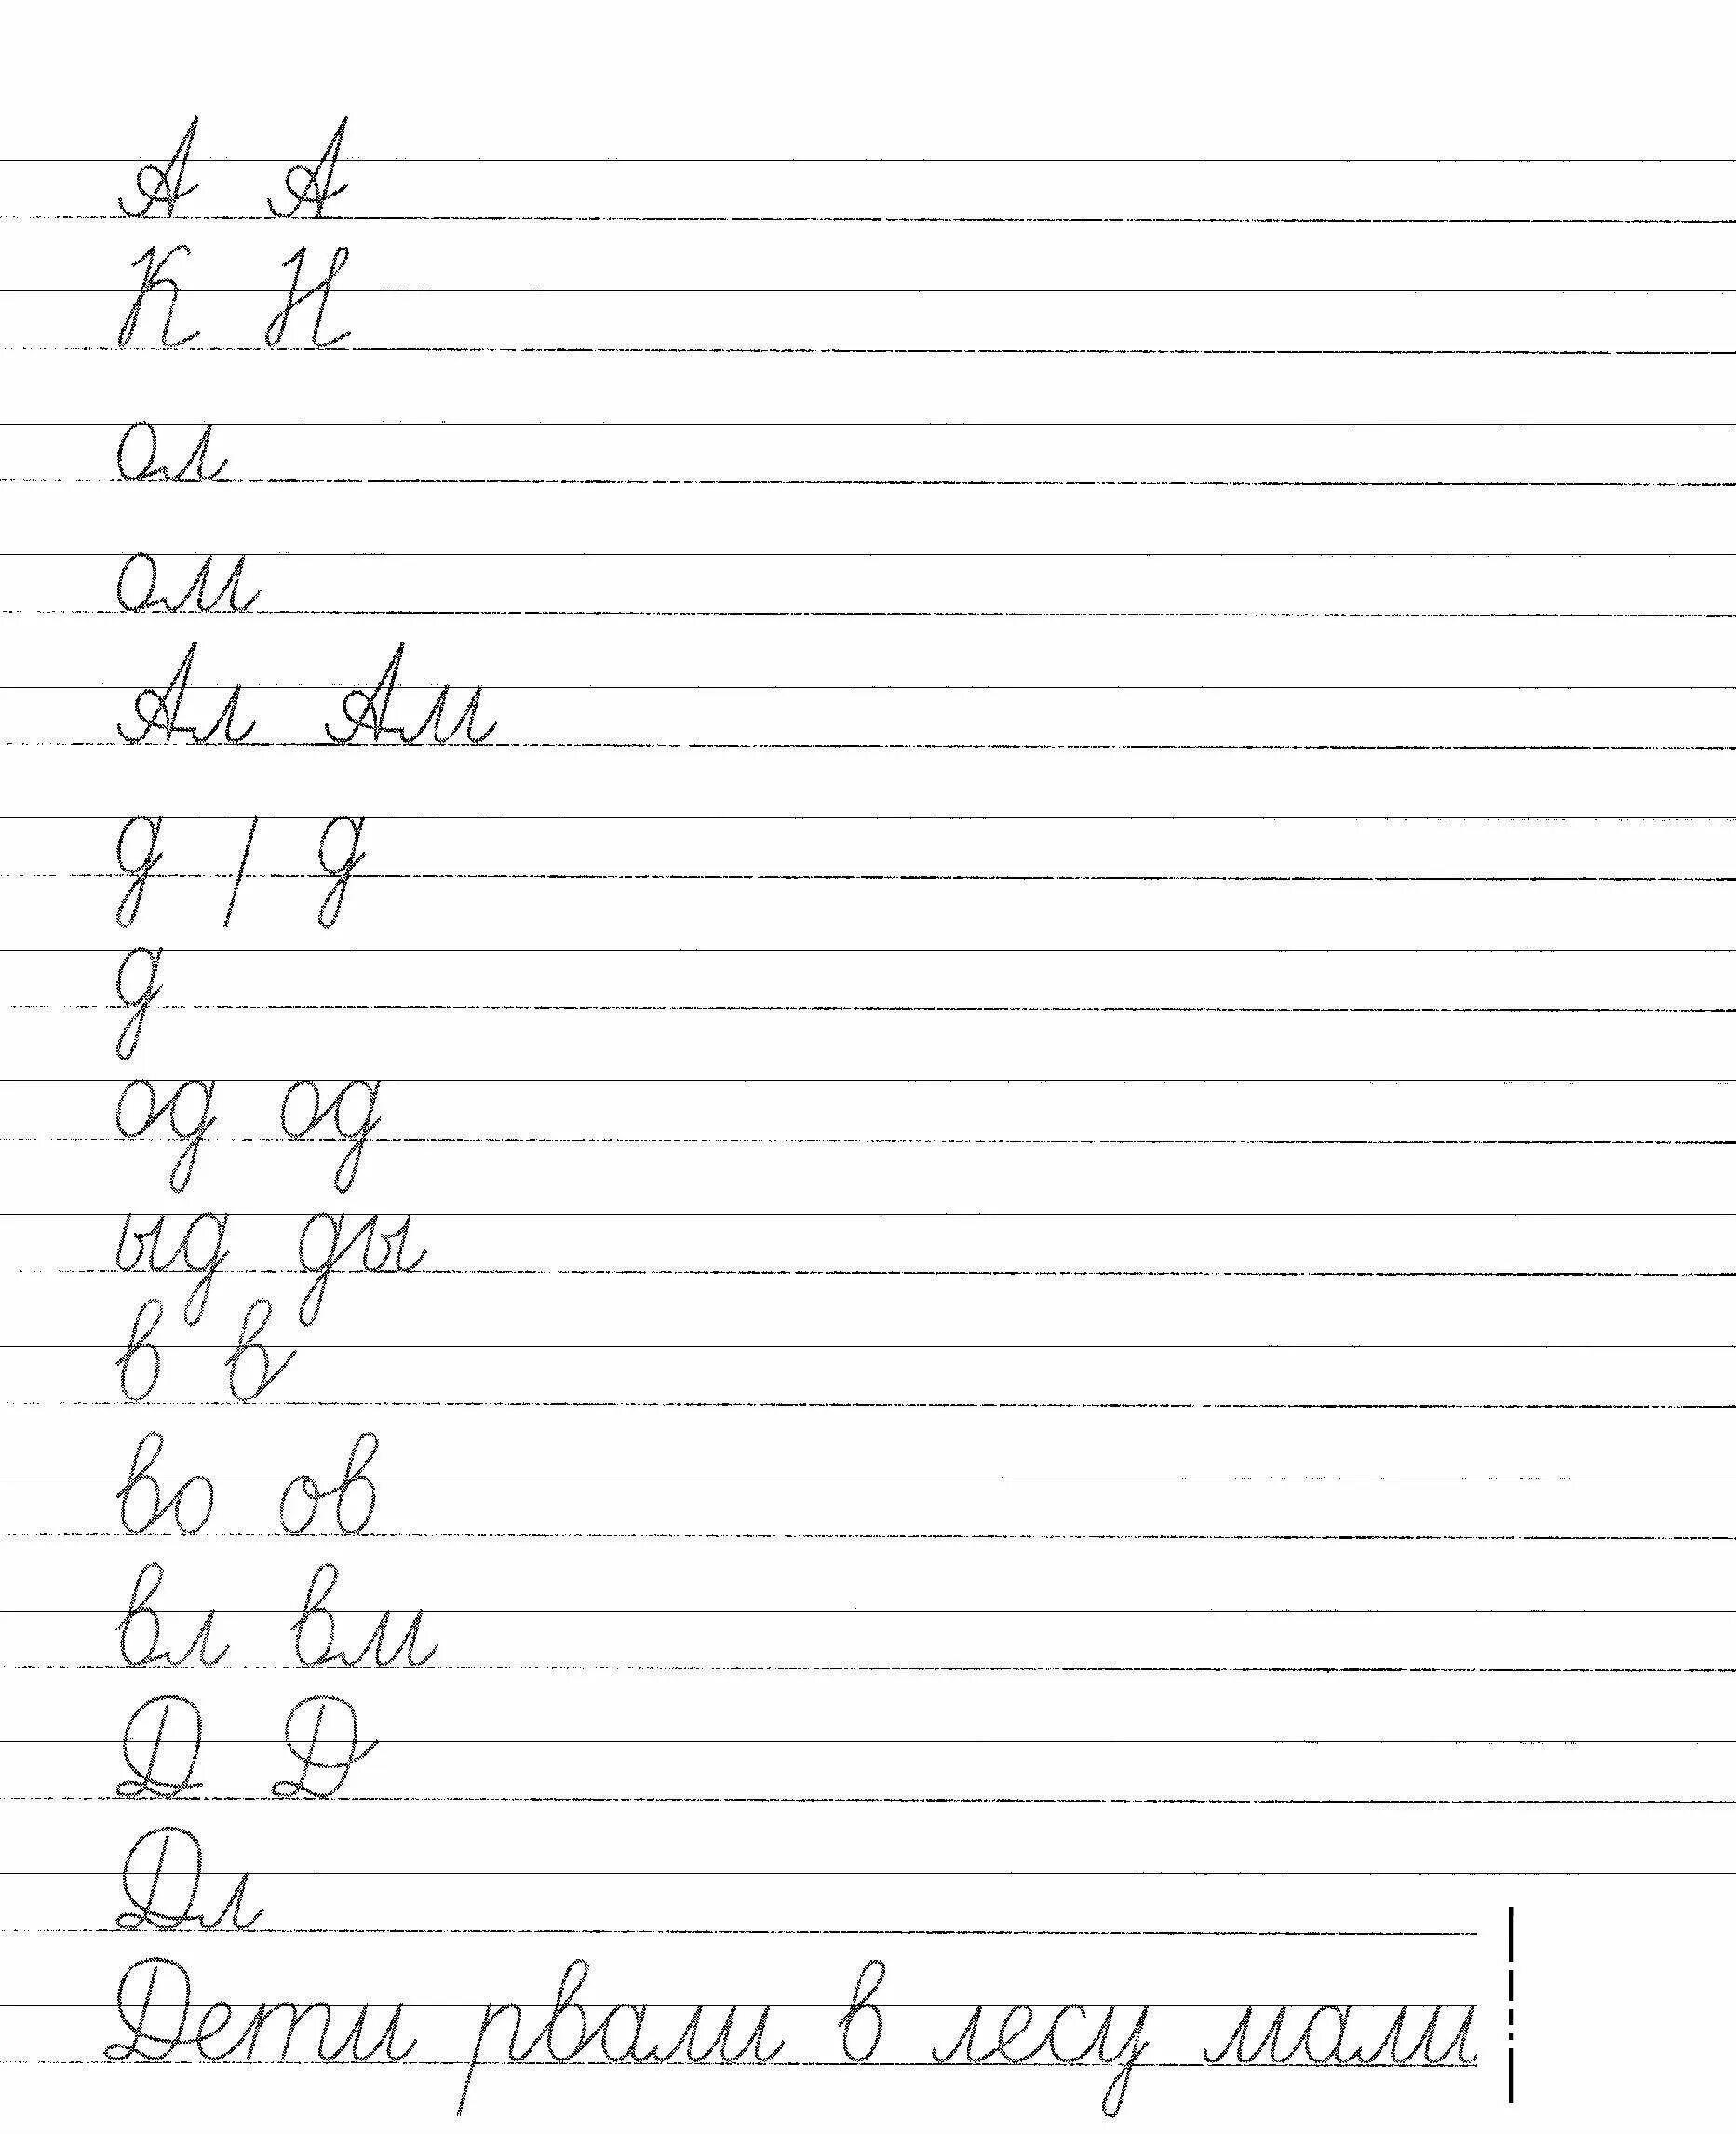 А А
К Н
ол
ом
Ал Ам
д / д
д
од од
ыд ды
в в
во ов
вл вм
Д Д
Дл
Дети рвали в лесу мали